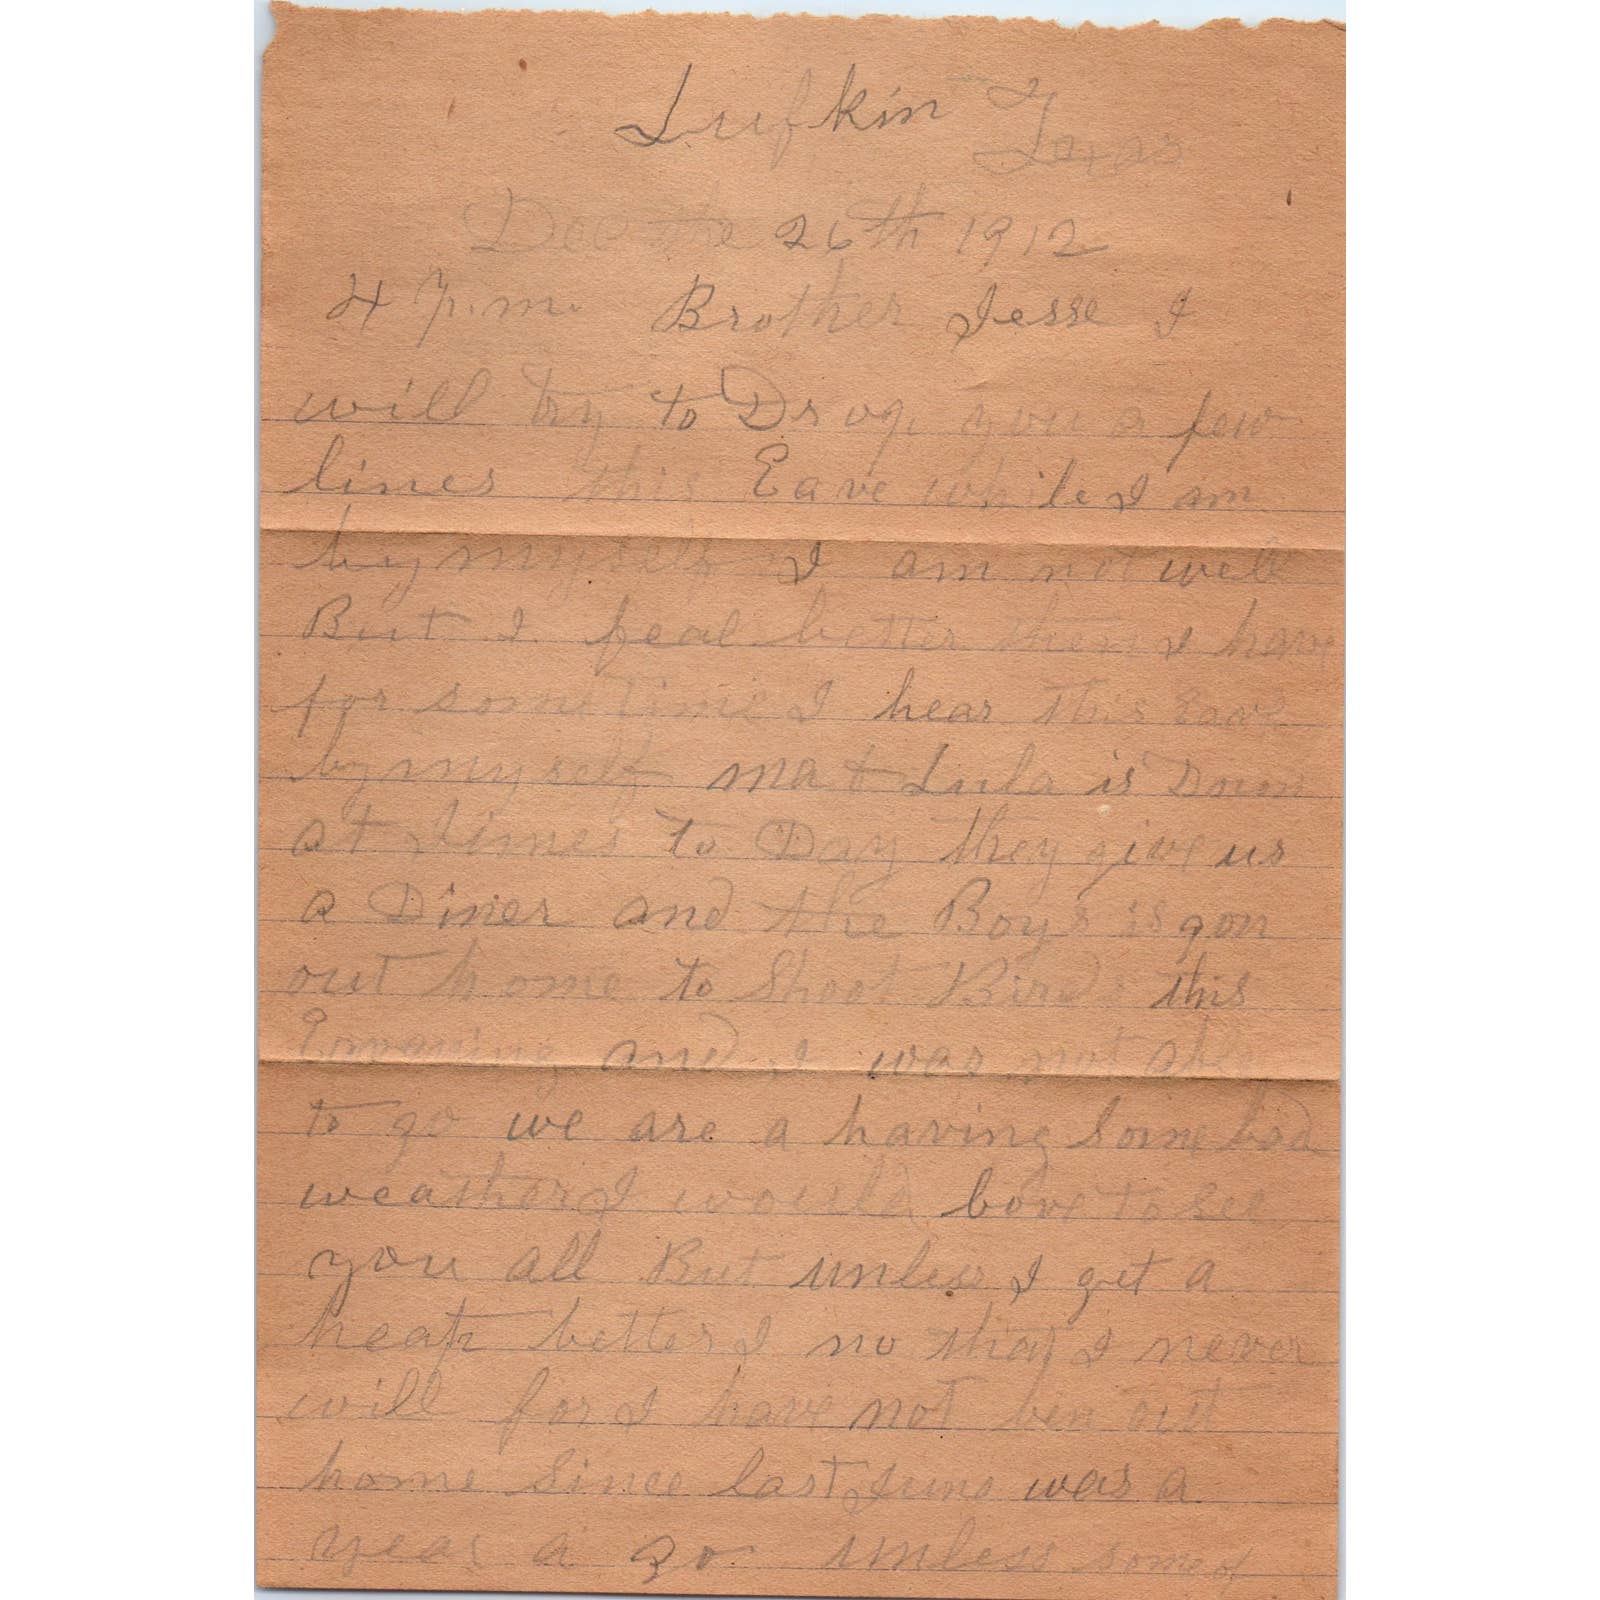 Lufkin Texas
Dec the 26th 1912
4 P.m. Brother Jesse I
will try to Drop you a few
lines this Eave while I am
by myself I am not well
But I feal better then I have
for sometime I hear this Eave
by myself ma & Lula is Down
at Jimes to Day they give us
a Diner and the Boys is gon
out home to Shoot Birds this
and I was not able
to go we are a having Some bad
weather I would love to see
you all But unless I get a
heap better I no that I never
will for I have not ben out
home Since last June was a
year a go unless some of